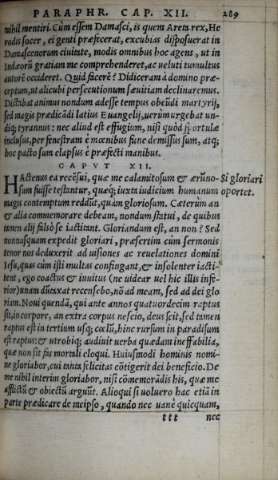 PARAPHR. CAP. XII. 289
nihil mentiri. Cum essem Damasci, is quem Arem rex, He
rodis socer, ei genti præfecerat, excubijs dispositis erat in
Damascenorum ciuitate, modis omnibus hoc agens, ut in
Iudæorũ gratiam me comprehenderet, ac ueluti tumultus
autorẽ occideret. Quid facerẽ? Didiceram à domino præ-
ceptum, ut alicubi persecutionum sæuitiam declinaremus.
Dictabat animus nondum adesse tempus obeũdi martyrij,
sed magis prædicãdi latius Euangelij, uerùm urgebat un-
diq; tyrannus: nec aliud est effugium, nisi quòd sportulæ
inclusus, per fenestram è mœnibus fune demissus sum, atq;
hoc pacto sum elapsus è præfecti manibus.
CAPVT XII.
HActenus ea recẽsui, quæ me calamitosum & ærũno-
sum fuisse testantur, quæq; iuxta iudicium humanum
magis contemptum reddũt, quàm gloriosum. Cæterùm an
& alia commemorare debeam, nondum statui, de quibus
uideo alij sese iactitant. Gloriandum est, an non? Sed
nonnusquam expedit gloriari, præsertim cùm sermonis
tenor nos deduxerit ad uisiones ac reuelationes domini
Iesu, quas cùm isti multas confingant, & insolenter iacti-
tent, ego coactus & inuitus (ne uidear uel hic illis infe-
rior) unam duntaxat recensebo, nõ ad meam, sed ad dei glo
riam. Noui quendã, qui ante annos quatuordecim raptus
sit, in corpore, an extra corpus nescio, deus scit, sed tamen
raptus est in tertium usq; cœlũ, hinc rursum in paradisum
est raptus: & utrobiq; audiuit uerba quædam ineffabilia,
quæ non sit fas mortali eloqui. Huiusmodi hominis nomi-
ne gloriabor, cui tanta felicitas cõtigerit dei beneficio. De
me nihil interim gloriabor, nisi cõmemorãdis his, quæ me
afflictũ & obiectũ arguũt. Alioqui si uoluero hac etiã in
parte prædicare de meipso, quando nec uanè quicquam,
ttt nec
Si gloriari
oportet.